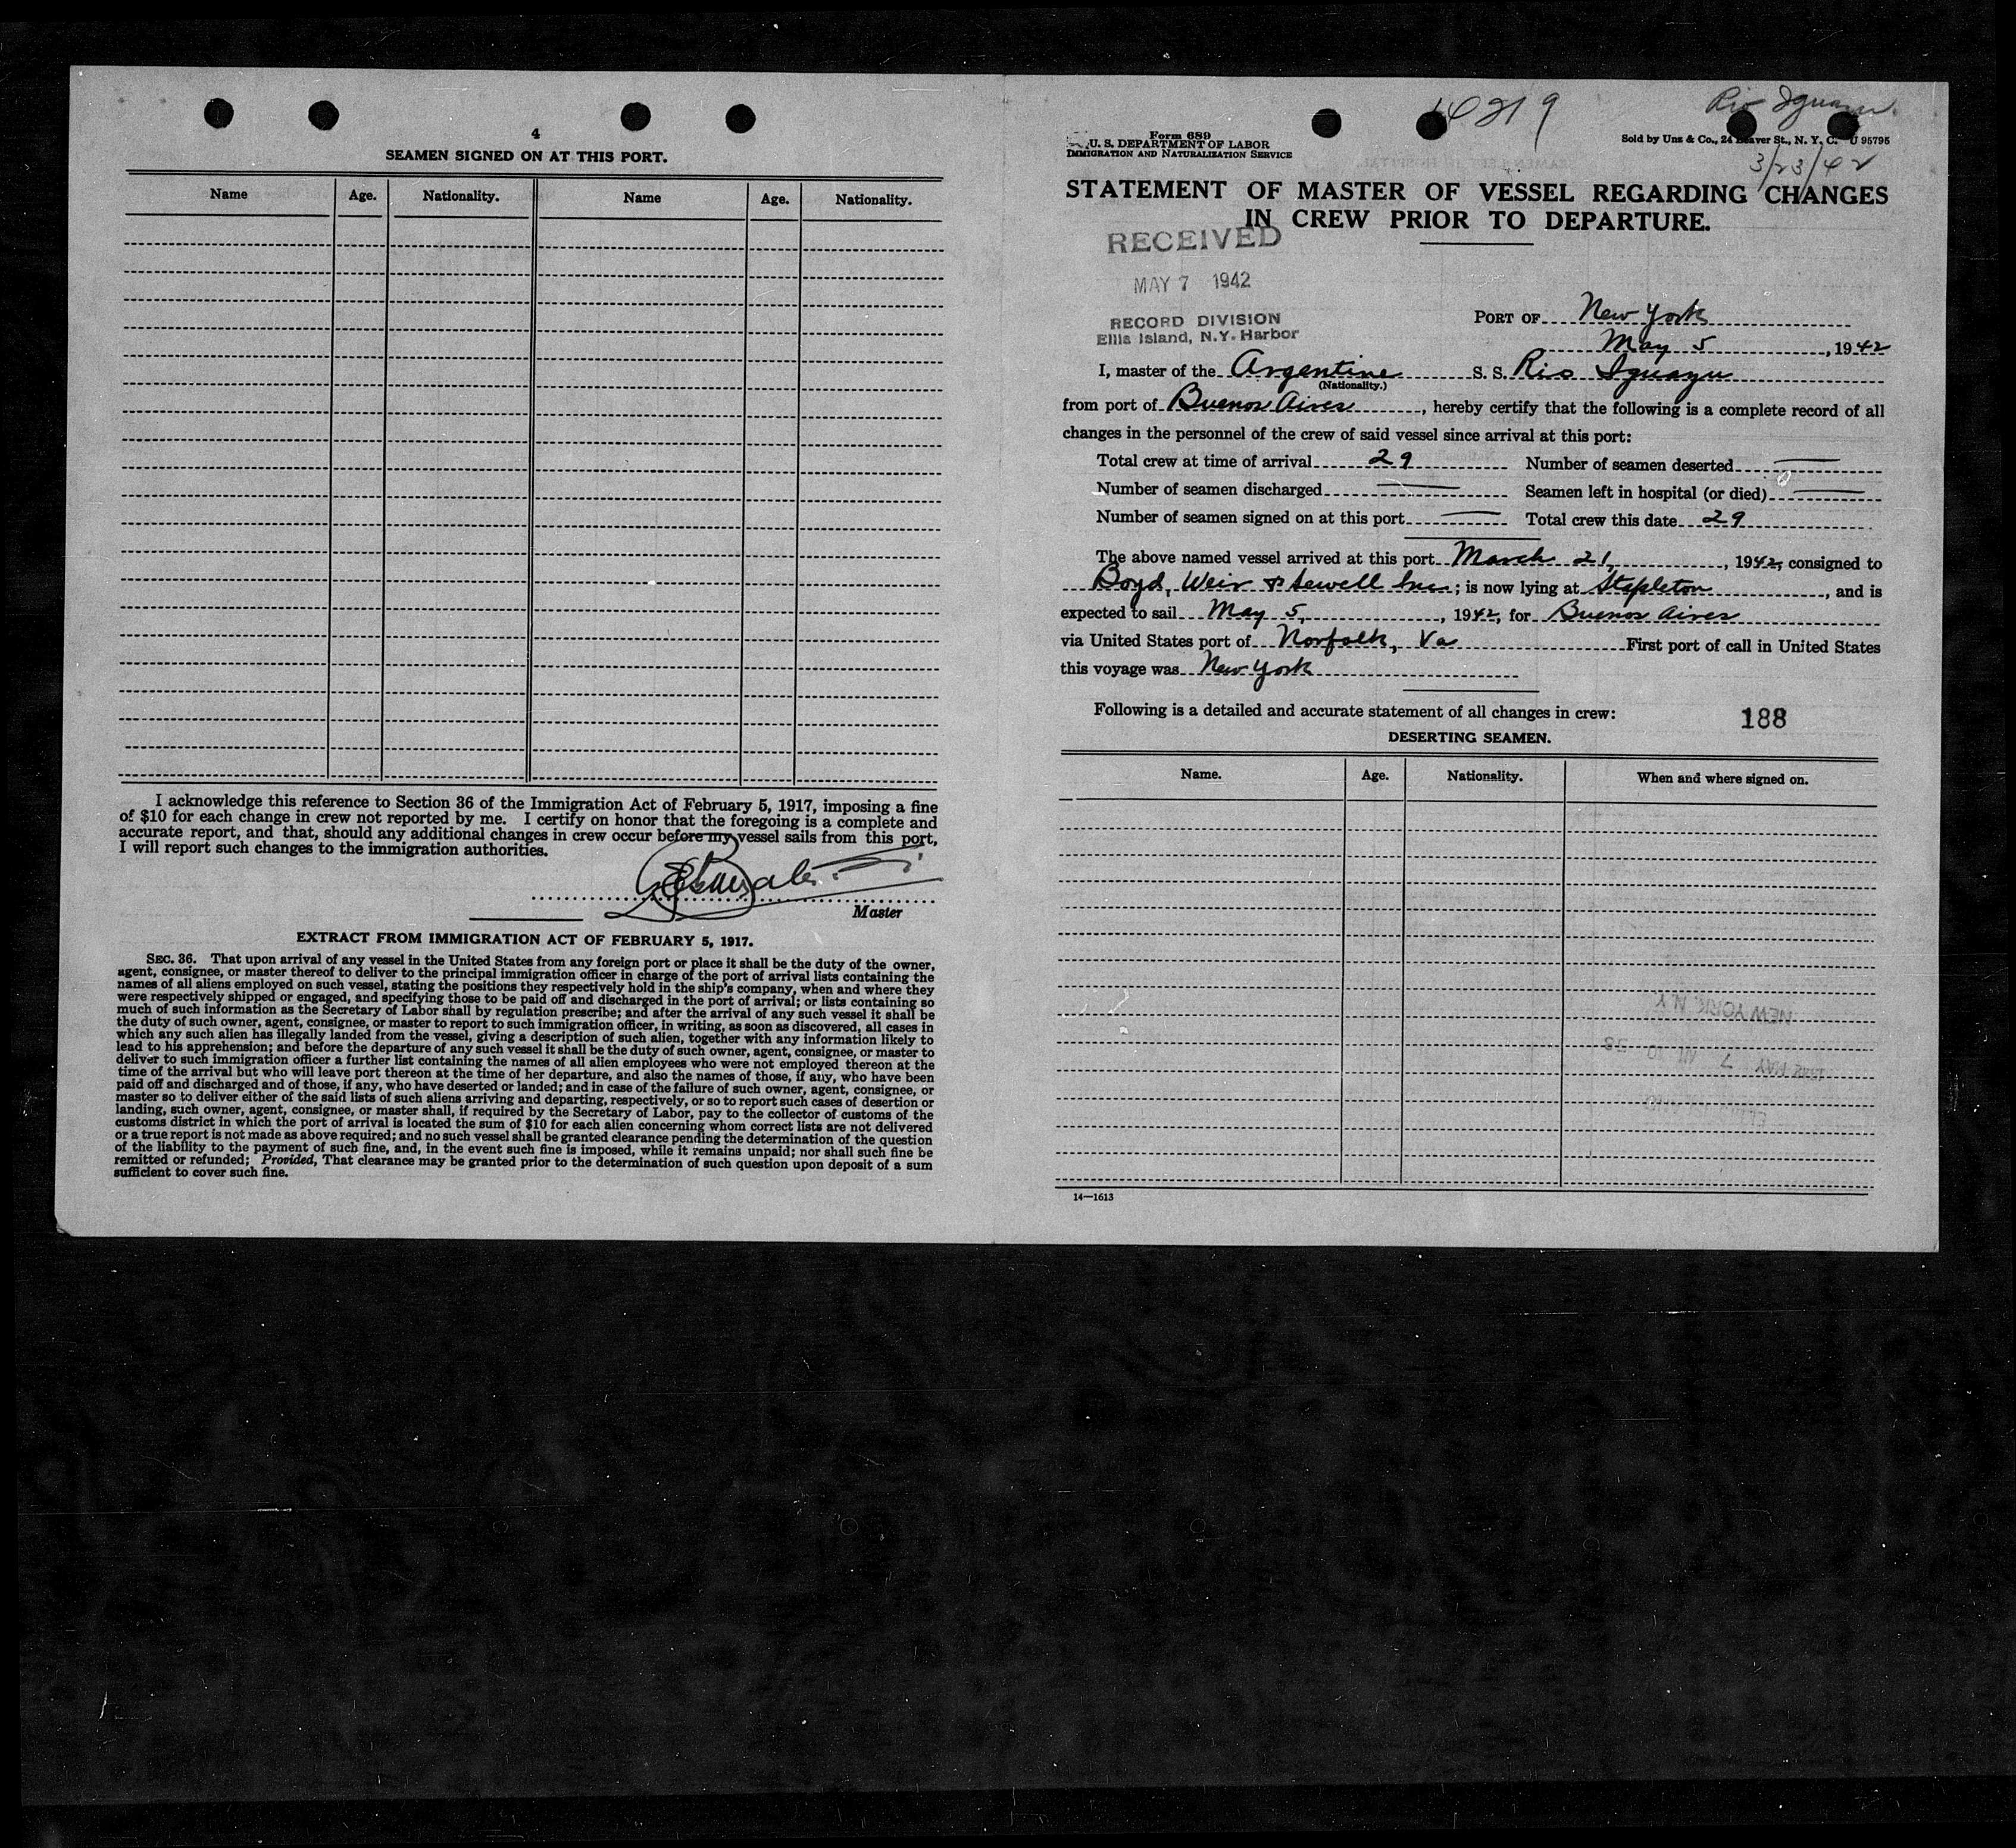 4
SEAMEN SIGNED ON AT THIS PORT.
Name Age. Nationality. Name Age. Nationality.
I acknowledge this reference to Section 36 of the Immigration Act of February 5, 1917, imposing a fine
of $10 for each change in crew not reported by me. I certify on honor that the foregoing is a complete and
accurate report, and that, should any additional changes in crew occur before my vessel sails from this port,
I will report such changes to the immigration authorities.
Master
EXTRACT FROM IMMIGRATION ACT OF FEBRUARY 5, 1917.
SEC. 36. That upon arrival of any vessel in the United States from any foreign port or place it shall be the duty of the owner,
agent, consignee, or master thereof to deliver to the principal immigration officer in charge of the port of arrival lists containing the
names of all aliens employed on such vessel, stating the positions they respectively hold in the ship's company, when and where they
were respectively shipped or engaged, and specifying those to be paid off and discharged in the port of arrival; or lists containing so
much of such information as the Secretary of Labor shall by regulation prescribe; and after the arrival of any such vessel it shall be
the duty of such owner, agent, consignee, or master to report to such immigration officer, in writing, as soon as discovered, all cases in
which any such alien has illegally landed from the vessel, giving a description of such alien, together with any information likely to
lead to his apprehension; and before the departure of any such vessel it shall be the duty of such owner, agent, consignee, or master to
deliver to such immigration officer a further list containing the names of all alien employees who were not employed thereon at the
time of the arrival but who will leave port thereon at the time of her departure, and also the names of those, if any, who have been
paid off and discharged and of those, if any, who have deserted or landed; and in case of the failure of such owner, agent, consignee, or
master so to deliver either of the said lists of such aliens arriving and departing, respectively, or so to report such cases of desertion or
landing, such owner, agent, consignee, or master shall, if required by the Secretary of Labor, pay to the collector of customs of the
customs district in which the port of arrival is located the sum of $10 for each alien concerning whom correct lists are not delivered
or a true report is not made as above required; and no such vessel shall be granted clearance pending the determination of the question
of the liability to the payment of such fine, and, in the event such fine is imposed, while it remains unpaid; nor shall such fine be
remitted or refunded; Provided, That clearance may be granted prior to the determination of such question upon deposit of a sum
sufficient to cover such fine.
Rio Iguazu
Form 689
U. S. DEPARTMENT OF LABOR
IMMIGRATION AND NATURALIZATION SERVICE
Sold by Unz & Co., 24 Beaver St., N. Y. C. U 95795
3/23/42
STATEMENT OF MASTER OF VESSEL REGARDING CHANGES
IN CREW PRIOR TO DEPARTURE.
RECEIVED
MAY 7 1942
RECORD DIVISION
Ellis Island, N.Y. Harbor
PORT OF New York
May 5, 1942
I, master of the Argentine S. S. Rio Iguazu
(Nationality.)
from port of Buenos Aires, hereby certify that the following is a complete record of all
changes in the personnel of the crew of said vessel since arrival at this port:
Total crew at time of arrival 29 Number of seamen deserted —
Number of seamen discharged — Seamen left in hospital (or died) —
Number of seamen signed on at this port — Total crew this date 29
The above named vessel arrived at this port March 21, 1942, consigned to
Boyd, Weir & Sewell Inc; is now lying at Stapleton, and is
expected to sail May 5, 1942, for Buenos Aires
via United States port of Norfolk, Va First port of call in United States
this voyage was New York
Following is a detailed and accurate statement of all changes in crew:
188
DESERTING SEAMEN.
Name. Age. Nationality. When and where signed on.
NEW YORK, N.Y.
1942 MAY 7
14—1613